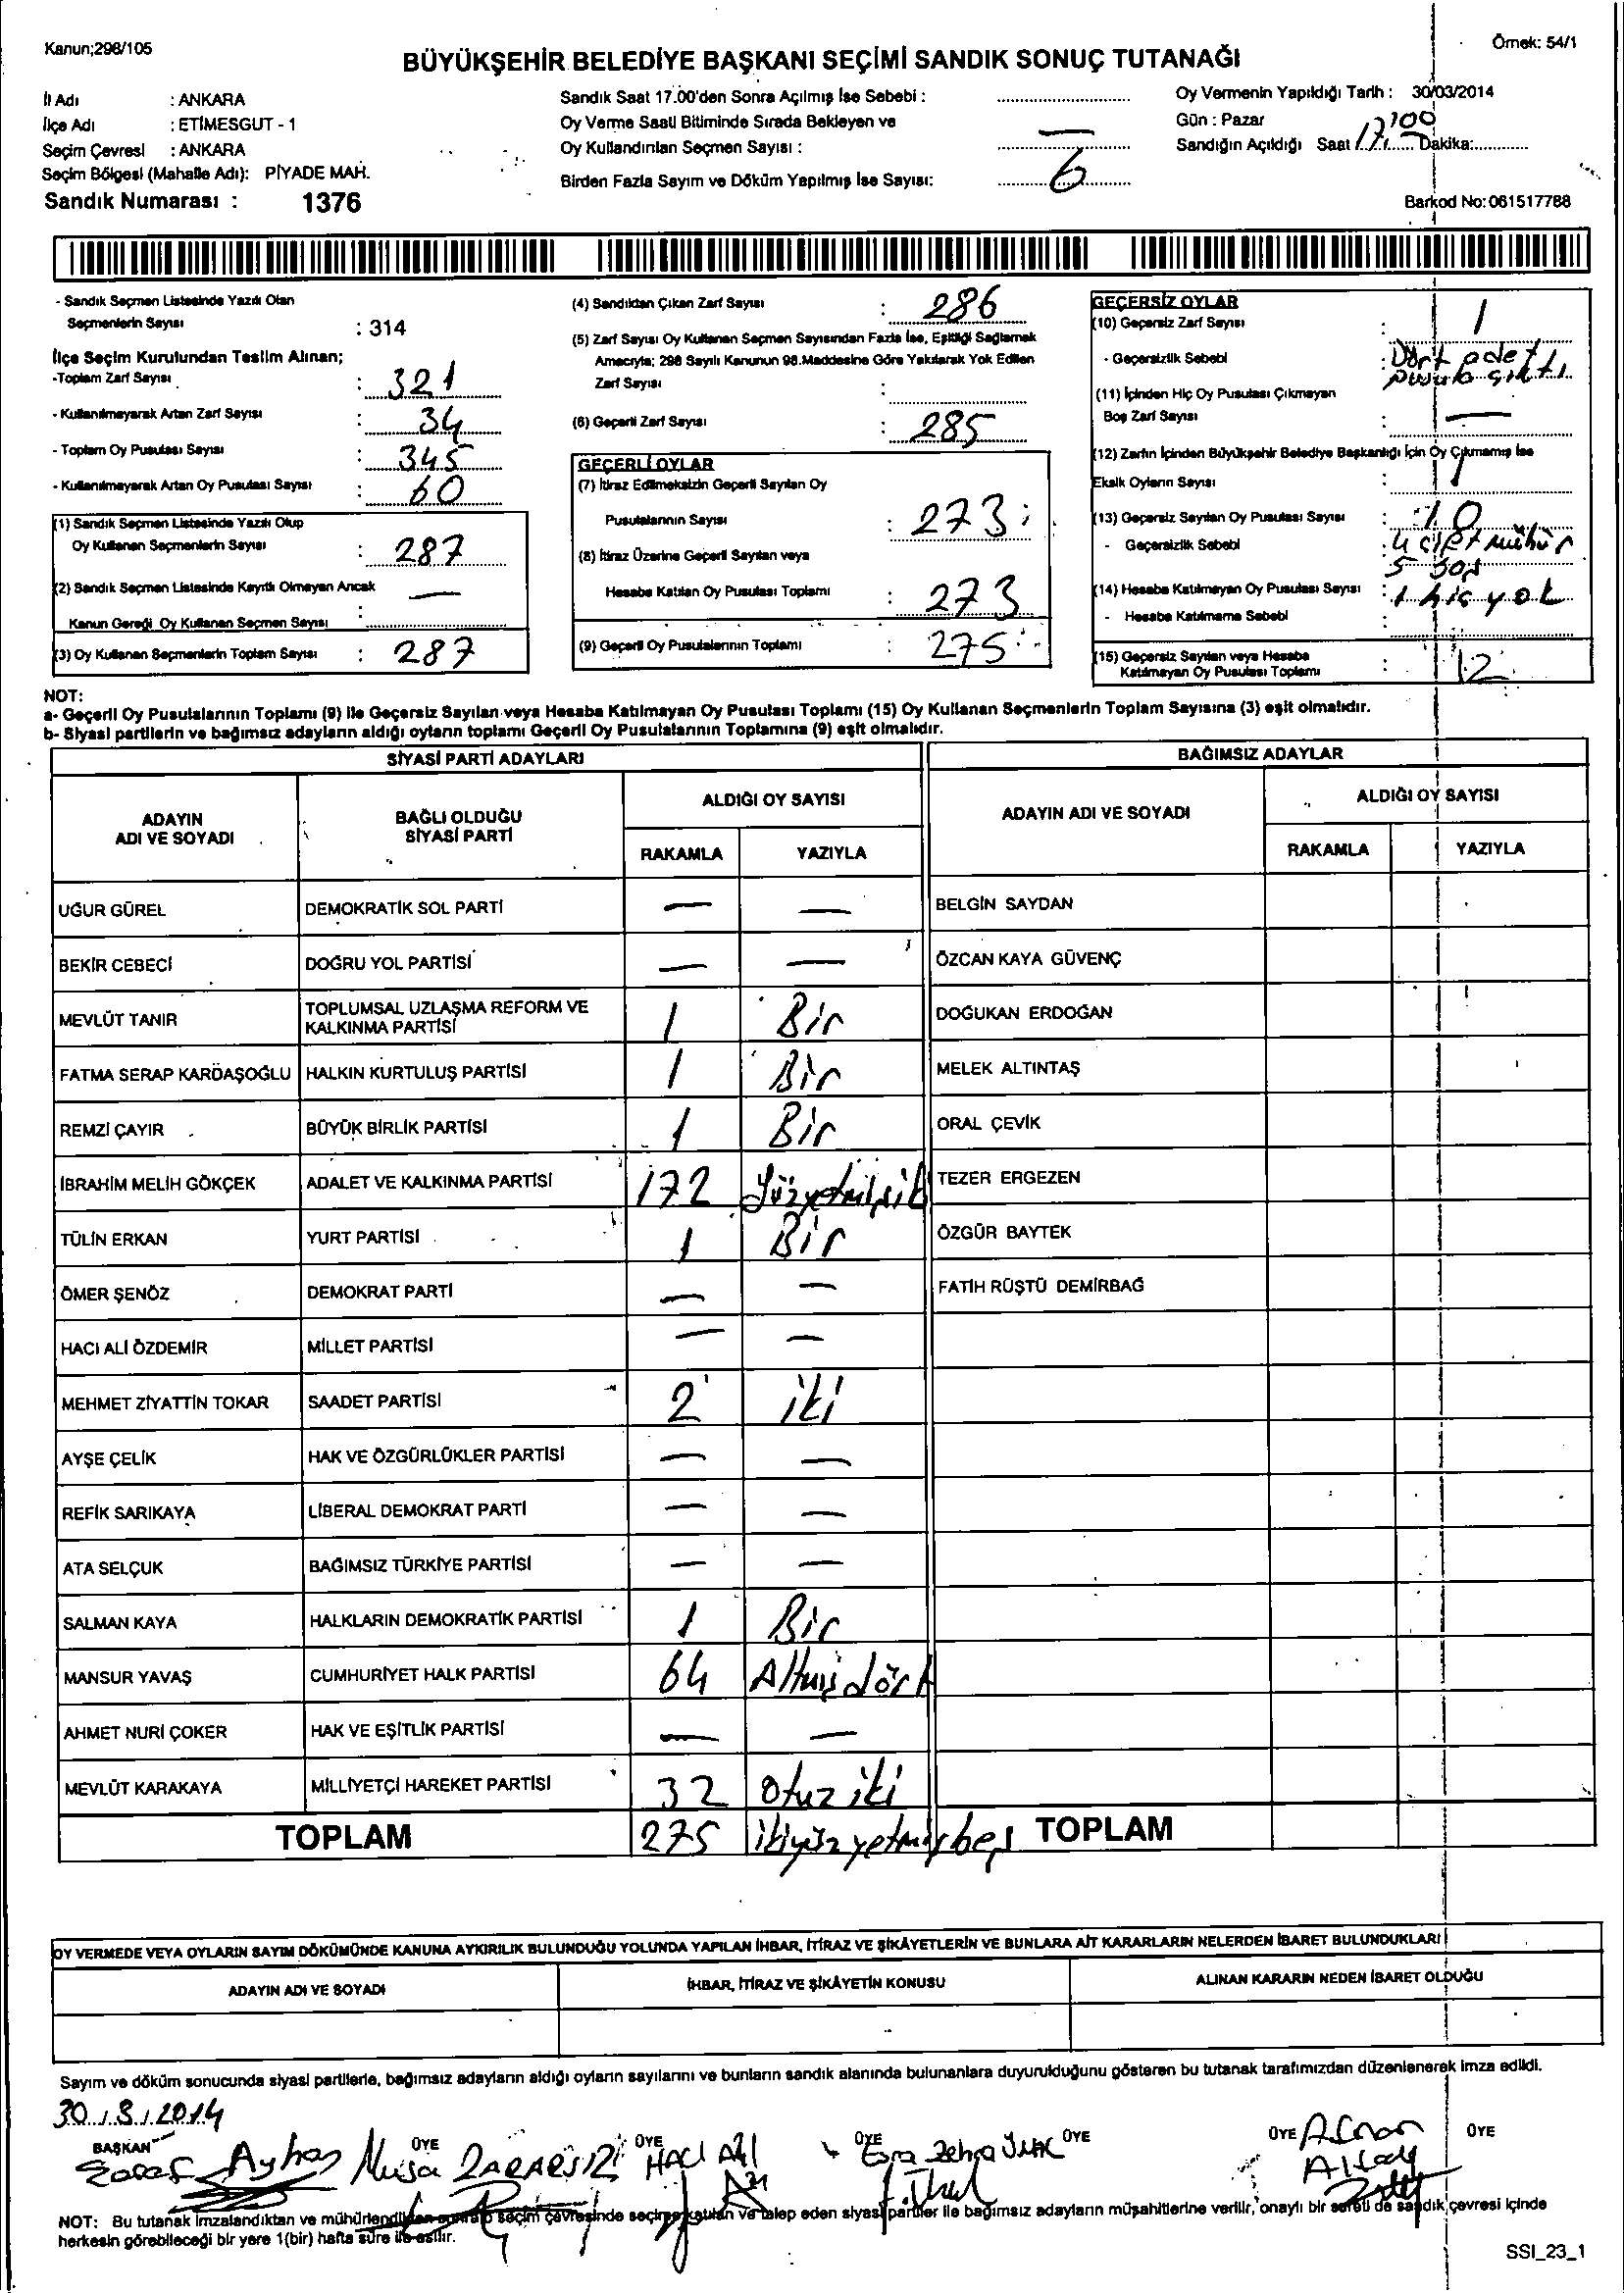 Kanun;298/105
Örnek: 54/1
BÜYÜKŞEHİR BELEDİYE BAŞKANI SEÇİMİ SANDIK SONUÇ TUTANAĞI
İl Adı : ANKARA
İlçe Adı : ETİMESGUT - 1
Seçim Çevresi : ANKARA
Seçim Bölgesi (Mahalle Adı): PİYADE MAH.
Sandık Numarası : 1376
Sandık Saat 17.00'den Sonra Açılmış İse Sebebi :
Oy Verme Saati Bitiminde Sırada Bekleyen ve
Oy Kullandırılan Seçmen Sayısı : —
Birden Fazla Sayım ve Döküm Yapılmış İse Sayısı: 6
Oy Vermenin Yapıldığı Tarih : 30/03/2014
Gün : Pazar
Sandığın Açıldığı Saat 17 Dakika: 00
Barkod No: 061517788
- Sandık Seçmen Listesinde Yazılı Olan
Seçmenlerin Sayısı : 314
İlçe Seçim Kurulundan Teslim Alınan;
-Toplam Zarf Sayısı : 321
- Kullanılmayarak Artan Zarf Sayısı : 34
- Toplam Oy Pusulası Sayısı : 345
- Kullanılmayarak Artan Oy Pusulası Sayısı : 60
(1) Sandık Seçmen Listesinde Yazılı Olup
Oy Kullanan Seçmenlerin Sayısı : 287
(2) Sandık Seçmen Listesinde Kayıtlı Olmayan Ancak
Kanun Gereği Oy Kullanan Seçmen Sayısı : —
(3) Oy Kullanan Seçmenlerin Toplam Sayısı : 287
(4) Sandıktan Çıkan Zarf Sayısı : 286
(5) Zarf Sayısı Oy Kullanan Seçmen Sayısından Fazla İse, Eşitliği Sağlamak
Amacıyla; 298 Sayılı Kanunun 98.Maddesine Göre Yakılarak Yok Edilen
Zarf Sayısı :
(6) Geçerli Zarf Sayısı : 285
GEÇERLİ OYLAR
(7) İtiraz Edilmeksizin Geçerli Sayılan Oy
Pusulalarının Sayısı : 273
(8) İtiraz Üzerine Geçerli Sayılan veya
Hesaba Katılan Oy Pusulası Toplamı : 273
(9) Geçerli Oy Pusulalarının Toplamı : 275
GEÇERSİZ OYLAR
(10) Geçersiz Zarf Sayısı : 1
- Geçersizlik Sebebi : Dört adet
pusula çıktı
(11) İçinden Hiç Oy Pusulası Çıkmayan
Boş Zarf Sayısı : —
(12) Zarfın İçinden Büyükşehir Belediye Başkanlığı İçin Oy Çıkmamış İse
Eksik Oyların Sayısı : 1
(13) Geçersiz Sayılan Oy Pusulası Sayısı : 10
- Geçersizlik Sebebi : 4 çift mühür
5 boş
(14) Hesaba Katılmayan Oy Pusulası Sayısı : 1 hiç yok
- Hesaba Katılmama Sebebi :
(15) Geçersiz Sayılan veya Hesaba
Katılmayan Oy Pusulası Toplamı : 12
NOT:
a- Geçerli Oy Pusulalarının Toplamı (9) ile Geçersiz Sayılan veya Hesaba Katılmayan Oy Pusulası Toplamı (15) Oy Kullanan Seçmenlerin Toplam Sayısına (3) eşit olmalıdır.
b- Siyasi partilerin ve bağımsız adayların aldığı oyların toplamı Geçerli Oy Pusulalarının Toplamına (9) eşit olmalıdır.
SİYASİ PARTİ ADAYLARI
BAĞIMSIZ ADAYLAR
ADAYIN ADI VE SOYADI
BAĞLI OLDUĞU SİYASİ PARTİ
ALDIĞI OY SAYISI
RAKAMLA YAZIYLA
ADAYIN ADI VE SOYADI
ALDIĞI OY SAYISI
RAKAMLA YAZIYLA
UĞUR GÜREL DEMOKRATİK SOL PARTİ — — BELGİN SAYDAN
BEKİR CEBECİ DOĞRU YOL PARTİSİ — — ÖZCAN KAYA GÜVENÇ
MEVLÜT TANIR TOPLUMSAL UZLAŞMA REFORM VE KALKINMA PARTİSİ 1 Bir DOĞUKAN ERDOĞAN
FATMA SERAP KARDAŞOĞLU HALKIN KURTULUŞ PARTİSİ 1 Bir MELEK ALTINTAŞ
REMZİ ÇAYIR BÜYÜK BİRLİK PARTİSİ 1 Bir ORAL ÇEVİK
İBRAHİM MELİH GÖKÇEK ADALET VE KALKINMA PARTİSİ 172 Yüzyetmişiki TEZER ERGEZEN
TÜLİN ERKAN YURT PARTİSİ 1 Bir ÖZGÜR BAYTEK
ÖMER ŞENÖZ DEMOKRAT PARTİ — — FATİH RÜŞTÜ DEMİRBAĞ
HACI ALİ ÖZDEMİR MİLLET PARTİSİ — —
MEHMET ZİYATTİN TOKAR SAADET PARTİSİ 2 iki
AYŞE ÇELİK HAK VE ÖZGÜRLÜKLER PARTİSİ — —
REFİK SARIKAYA LİBERAL DEMOKRAT PARTİ — —
ATA SELÇUK BAĞIMSIZ TÜRKİYE PARTİSİ — —
SALMAN KAYA HALKLARIN DEMOKRATİK PARTİSİ 1 Bir
MANSUR YAVAŞ CUMHURİYET HALK PARTİSİ 64 Altmışdört
AHMET NURİ ÇOKER HAK VE EŞİTLİK PARTİSİ — —
MEVLÜT KARAKAYA MİLLİYETÇİ HAREKET PARTİSİ 32 Otuz iki
TOPLAM 275 ikiyüzyetmişbeş TOPLAM
OY VERMEDE VEYA OYLARIN SAYIM DÖKÜMÜNDE KANUNA AYKIRILIK BULUNDUĞU YOLUNDA YAPILAN İHBAR, İTİRAZ VE ŞİKÂYETLERİN VE BUNLARA AİT KARARLARIN NELERDEN İBARET BULUNDUKLARI
ADAYIN ADI VE SOYADI İHBAR, İTİRAZ VE ŞİKÂYETİN KONUSU ALINAN KARARIN NEDEN İBARET OLDUĞU
Sayım ve döküm sonucunda siyasi partilerle, bağımsız adayların aldığı oyların sayılarını ve bunların sandık alanında bulunanlara duyurulduğunu gösteren bu tutanak tarafımızdan düzenlenerek imza edildi.
30/3/2014
BAŞKAN ÜYE ÜYE ÜYE ÜYE ÜYE ÜYE
Ayhan Musa ZARARSIZ HACI Ali Esra Zehra Adnan
Altay
NOT: Bu tutanak imzalandıktan ve mühürlendikten sonra o seçim çevresinde seçime katılan ve talep eden siyasi partiler ile bağımsız adayların müşahitlerine verilir, onaylı bir sureti de sandık çevresi içinde
herkesin görebileceği bir yere 1(bir) hafta süre ile asılır.
SSI_23_1